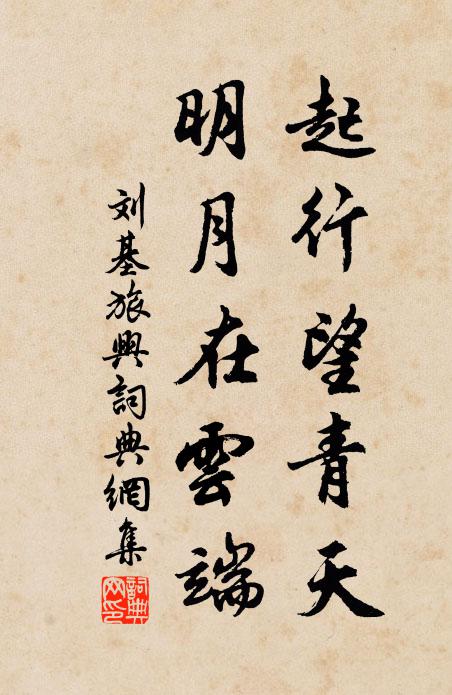 起行望青天
明月在雲端
刘基旅興詞典網集
詞典
网印